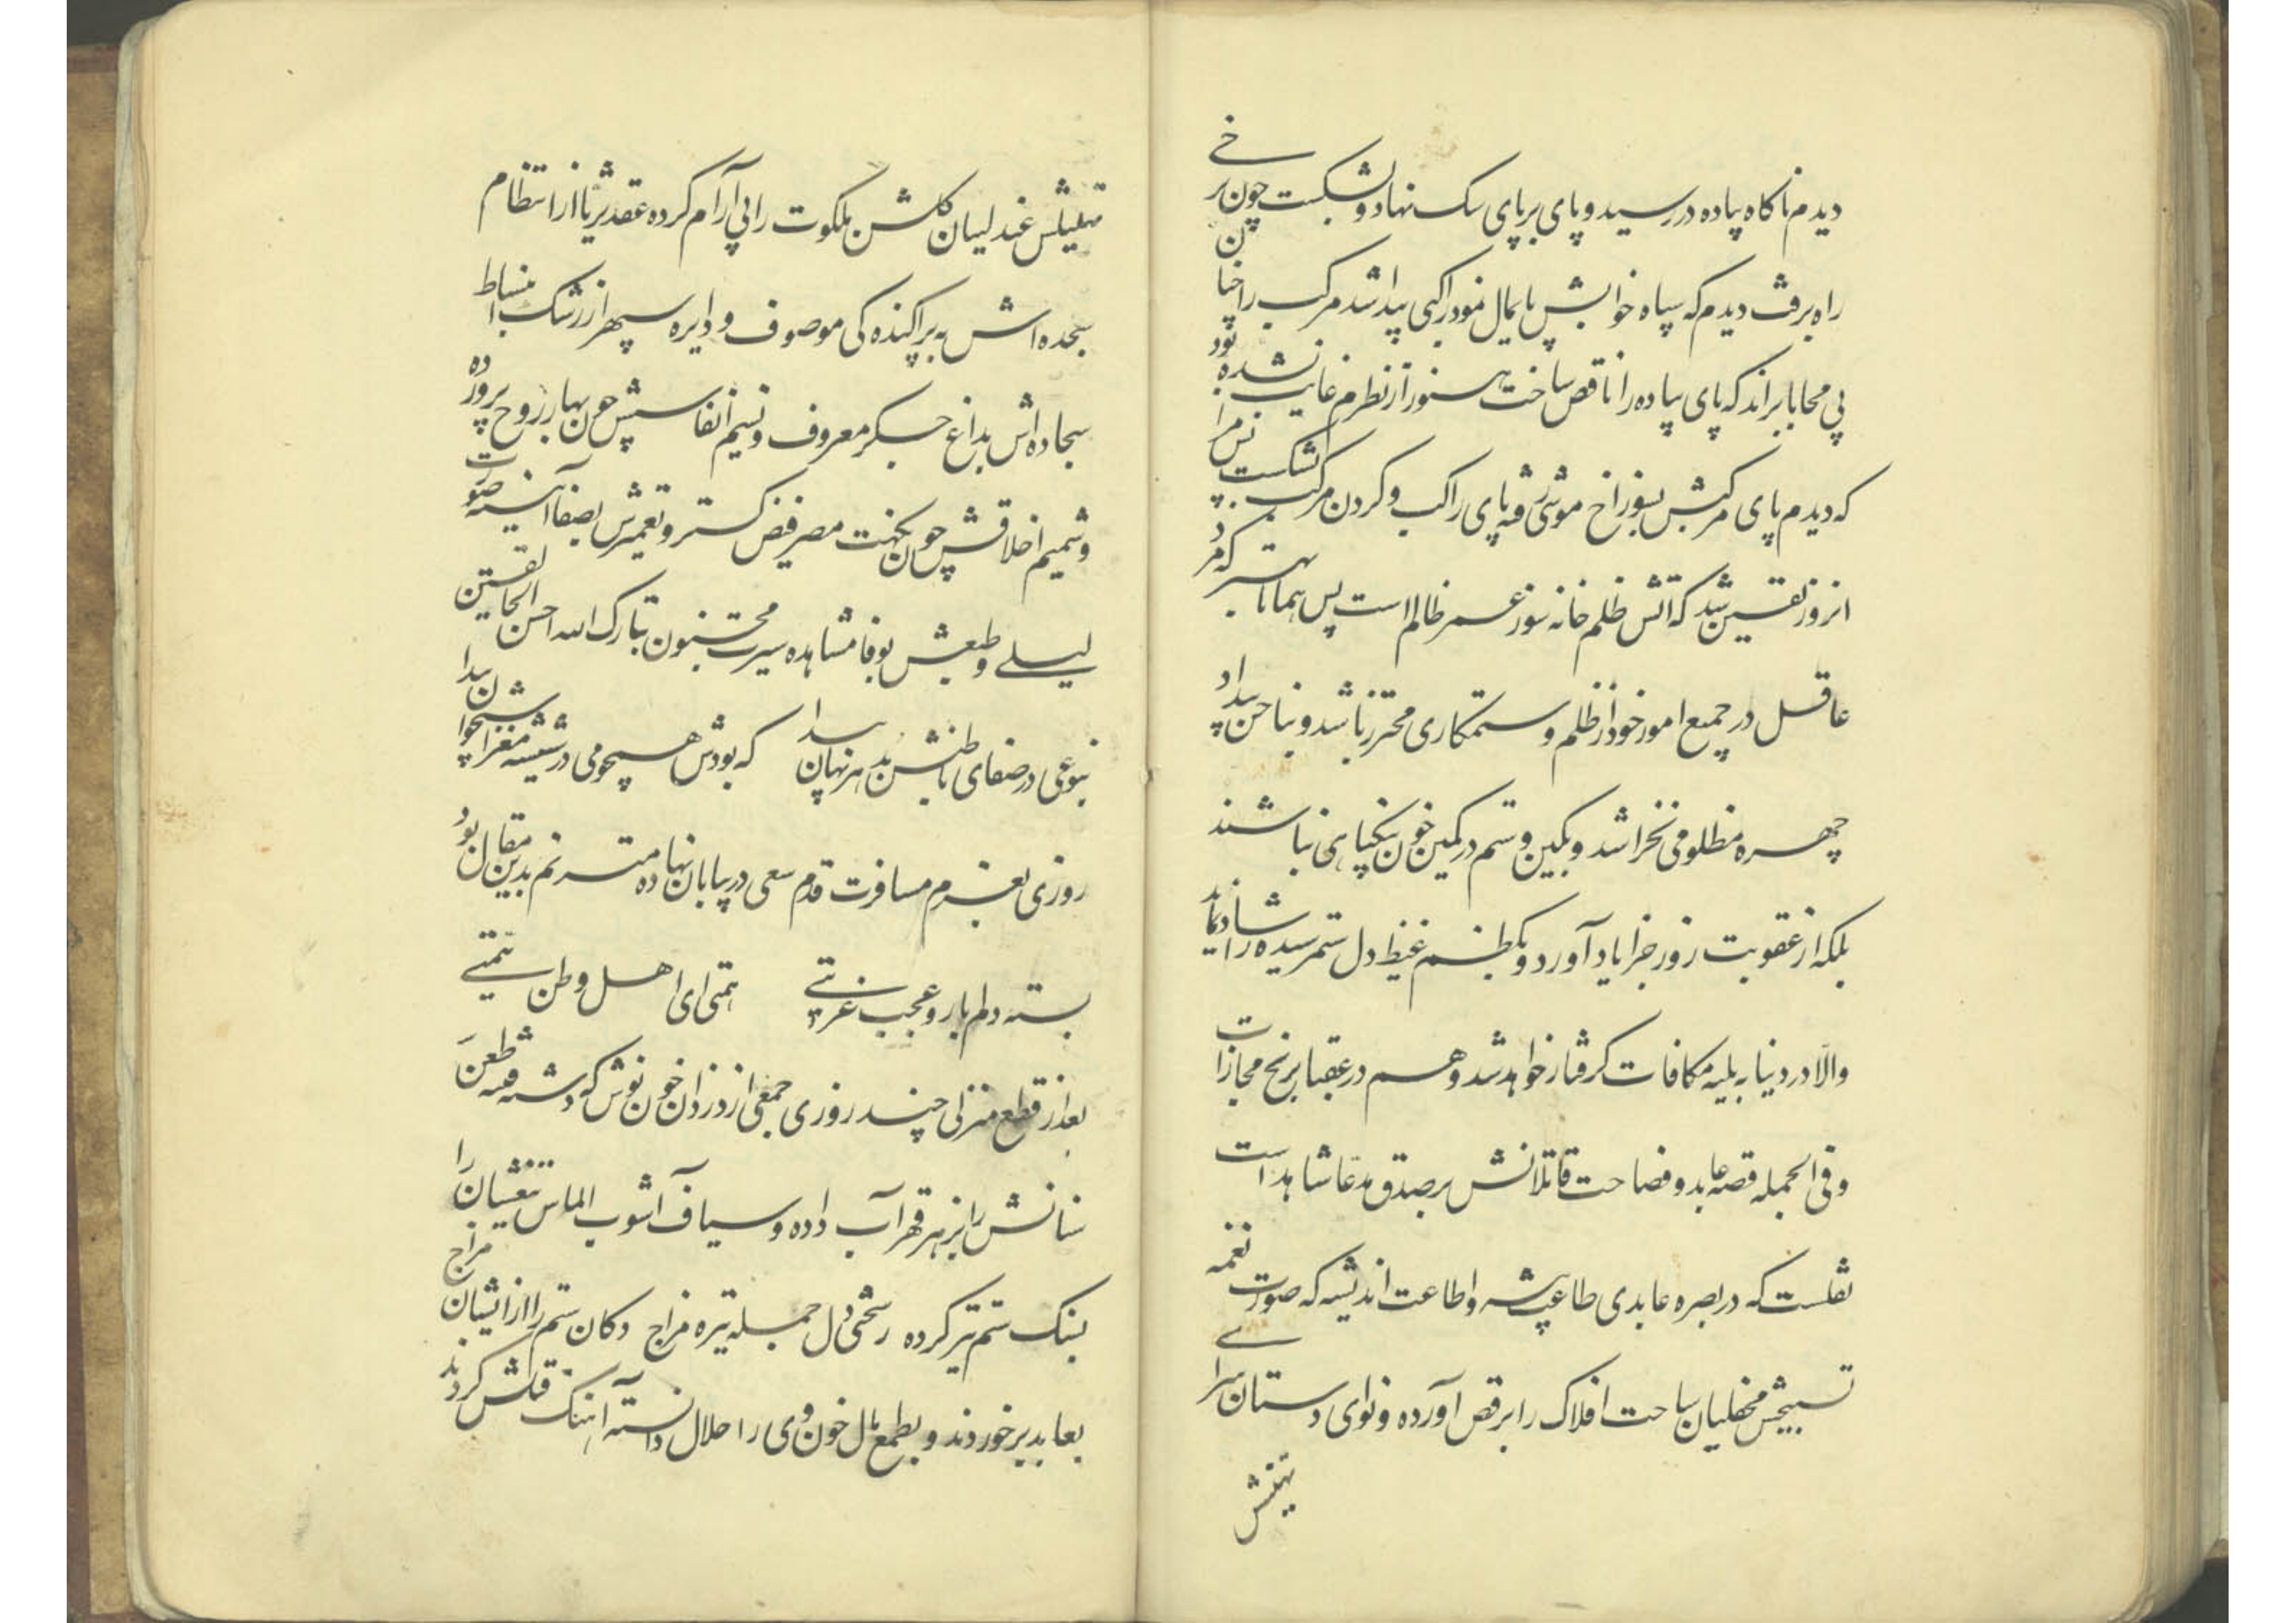 دیدم ناکاه پیاده در رسید و پای بر پای سک نهاد و بشکست چون برخی
راه برفت دیدم که سپاه خوابش پایمال نمود راکبی پیدا شد مرکب را چنان
بی محابا براند که پای پیاده را ناقص ساخت هنوز از نظرم غایب نشده بود
که دیدم پای مرکبش بسوراخ موشی رفته پای راکب و کردن مرکب بشکست پس مرا
انروز یقین شد که اتش ظلم خانه سوز عمر ظالم است پس همانا بهتر که مرد
عاقل در جمیع امور خود از ظلم و ستمکاری محترز باشد و بناخن بیداد
چهره مظلومی نخراشد و بکین و ستم در کمین خون بیکناهی نباشند
بلکه از عقوبت روز جزا یاد آورد و بکظم غیظ دل ستمرسیده را شاد نماید
والا در دنیا ببلیه مکافات کرفتار خواهد شد و هم در عقبا برنج مجازات
و فی الجمله قصه عابد و فضاحت قاتلانش بر صدق مدعا شاهد است
نقلست که در بصره عابدی طاعت پیشه و اطاعت اندیشه که صورت نغمه
تسبیحش محفلیان ساحت افلاک را برقص آورده و نوای دستان سرای
تهلیلش
تهلیلش عندلیبان کلشن ملکوت را بی آرام کرده عقد ثریا از انتظام
سجده اش به پراکنده کی موصوف و دایره سپهر از رشک انبساط
سجاده اش بداغ جکر معروف و نسیم انفاسش چون بهار روح پرورده
و شمیم اخلاقش چون نکهت مصر فیض کستر و تعمیرش بصفا آینه صورت
لیلی و طبعش بوفا مشاهده سیرت مجنون تبارک الله احسن الخالقین
بنوعی در صفای باطنش بد هر نهان پیدا که بودش همچو می در شیشه مغز استخوان پیدا
روزی بعزم مسافرت قدم سعی در بیابان نهاده مترنم بدین مقال بود
بسته دلم بار و عجب غربتی همتی ای اهل وطن همتی
بعد از قطع منزلی چند روزی جمعی از دزدان خون نوش که دشنه طعن
سنانش را بزهر قهر آب داده و سیاف آشوب الماس تیغشان را
بسنک ستم تیز کرده سختی دل جمله تیره مزاج دکان ستم را از ایشان مزاج
بعابد برخوردند و بطمع مال خون وی را حلال دانسته آهنک قتلش کردند